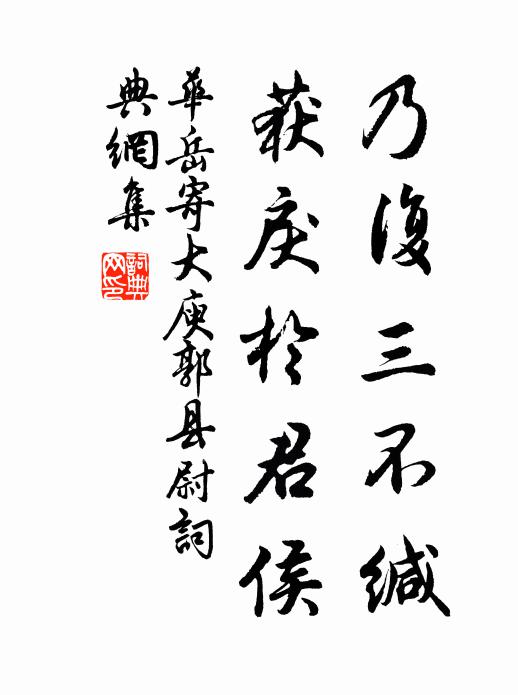 乃復三不緘
获戾於君侯
華岳寄大庾郭县尉詞
典網集
詞典网印